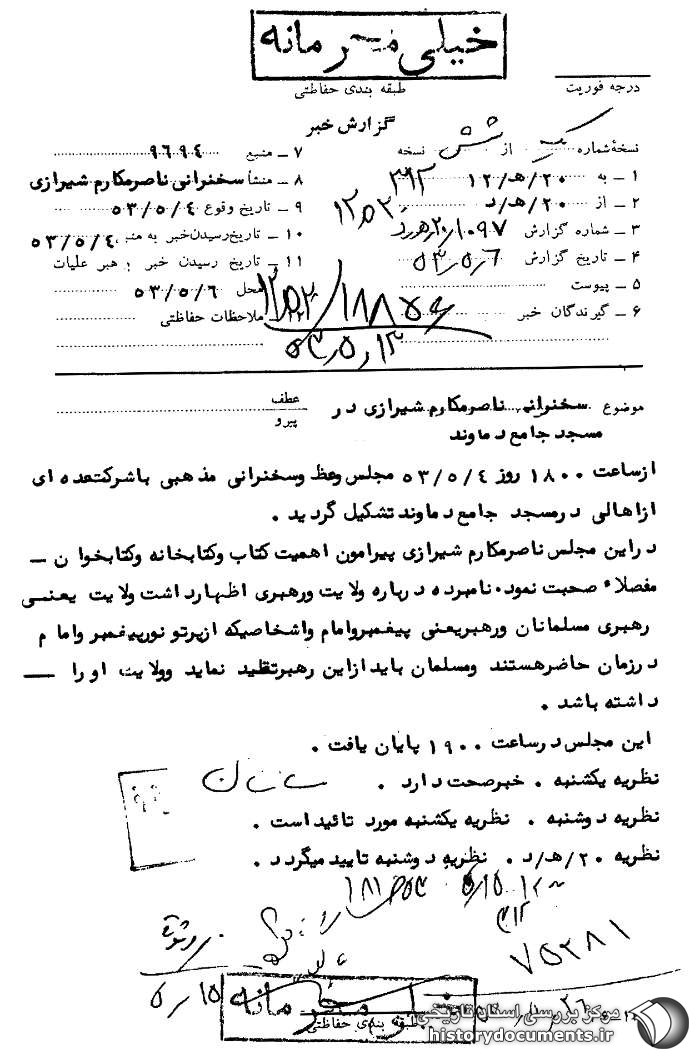 خیلی محرمانه
طبقه بندی حفاظتی
درجه فوریت
گزارش خبر
نسخهٔ شماره یک از شش نسخه
۱ ـ به ۲۰/هـ/۱۲ ۳۱۲
۲ ـ از ۲۰/هـ/د
۳ ـ شماره گزارش ۲۰/۱۰۹۷ هـ د
۴ ـ تاریخ گزارش ۵۳/۵/۶
۵ ـ پیوست
۶ ـ گیرندگان خبر
۷ ـ منبع ۹۶۹۴
۸ ـ منشأ سخنرانی ناصرمکارم شیرازی
۹ ـ تاریخ وقوع ۵۳/۵/۴
۱۰ ـ تاریخ رسیدن خبر به منبع ۵۳/۵/۴
۱۱ ـ تاریخ رسیدن خبر به رهبر عملیات
محل ۵۳/۵/۶
ملاحظات حفاظتی
۵۳/۵/۱۳
موضوع سخنرانی ناصرمکارم شیرازی در
مسجد جامع دماوند
عطف
پیرو
ازساعت ۱۸۰۰ روز ۵۳/۵/۴ مجلس وعظ وسخنرانی مذهبی باشرکتعده ای
ازاهالی درمسجد جامع دماوند تشکیل گردید .
دراین مجلس ناصرمکارم شیرازی پیرامون اهمیت کتاب وکتابخانه وکتابخوان ــ
مفصلاً صحبت نمود. نامبرده درباره ولایت ورهبری اظهارداشت ولایت یعنی
رهبری مسلمانان ورهبریعنی پیغمبروامام واشخاصیکه ازپرتو نورپیغمبر وامام
درزمان حاضرهستند ومسلمان بایدازاین رهبرتقلید نماید وولایت اورا ــ
داشته باشد .
این مجلس درساعت ۱۹۰۰ پایان یافت .
نظریه یکشنبه . خبرصحت دارد .
نظریه دوشنبه . نظریه یکشنبه مورد تائیداست .
نظریه ۲۰/هـ/د . نظریه دوشنبه تایید میگردد .
۳۱۲
۷۵۲۸۱
۵/۱۵
خیلی محرمانه
طبقه بندی حفاظتی
مرکز بررسی اسناد تاریخی
historydocuments.ir